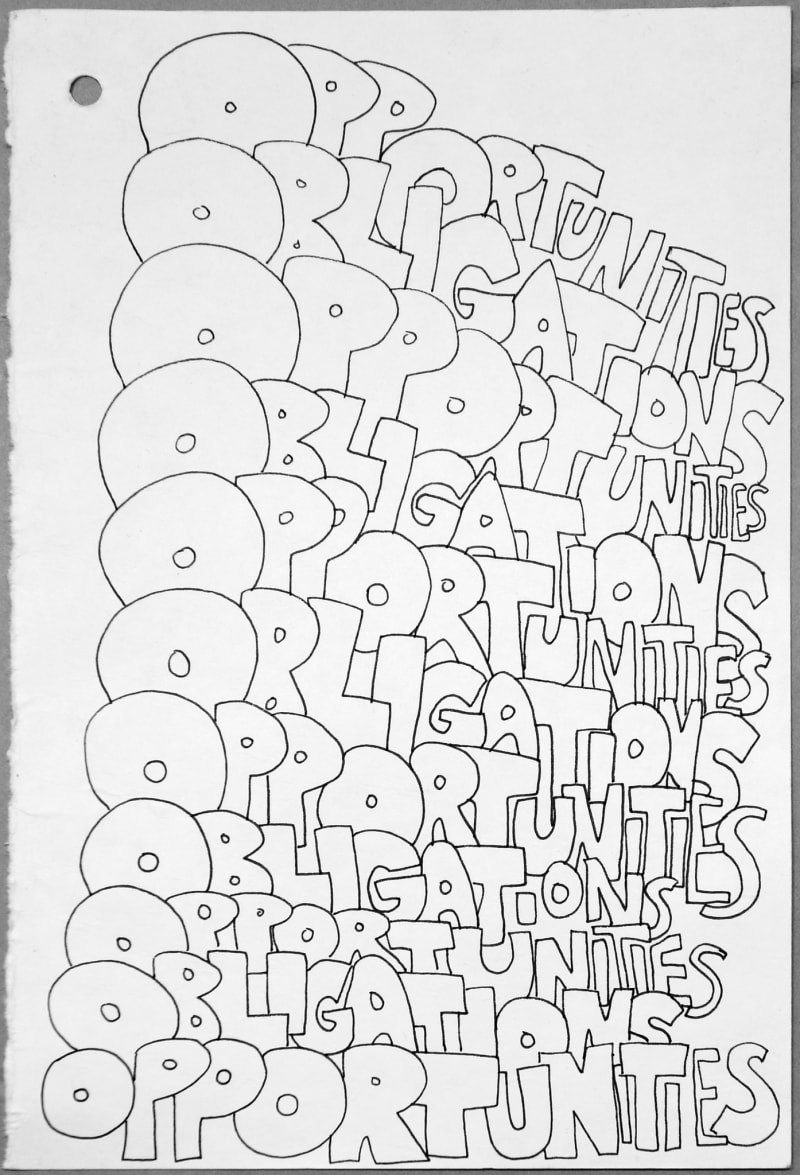 OPPORTUNITIES
OBLIGATIONS
OPPORTUNITIES
OBLIGATIONS
OPPORTUNITIES
OBLIGATIONS
OPPORTUNITIES
OBLIGATIONS
OPPORTUNITIES
OBLIGATIONS
OPPORTUNITIES